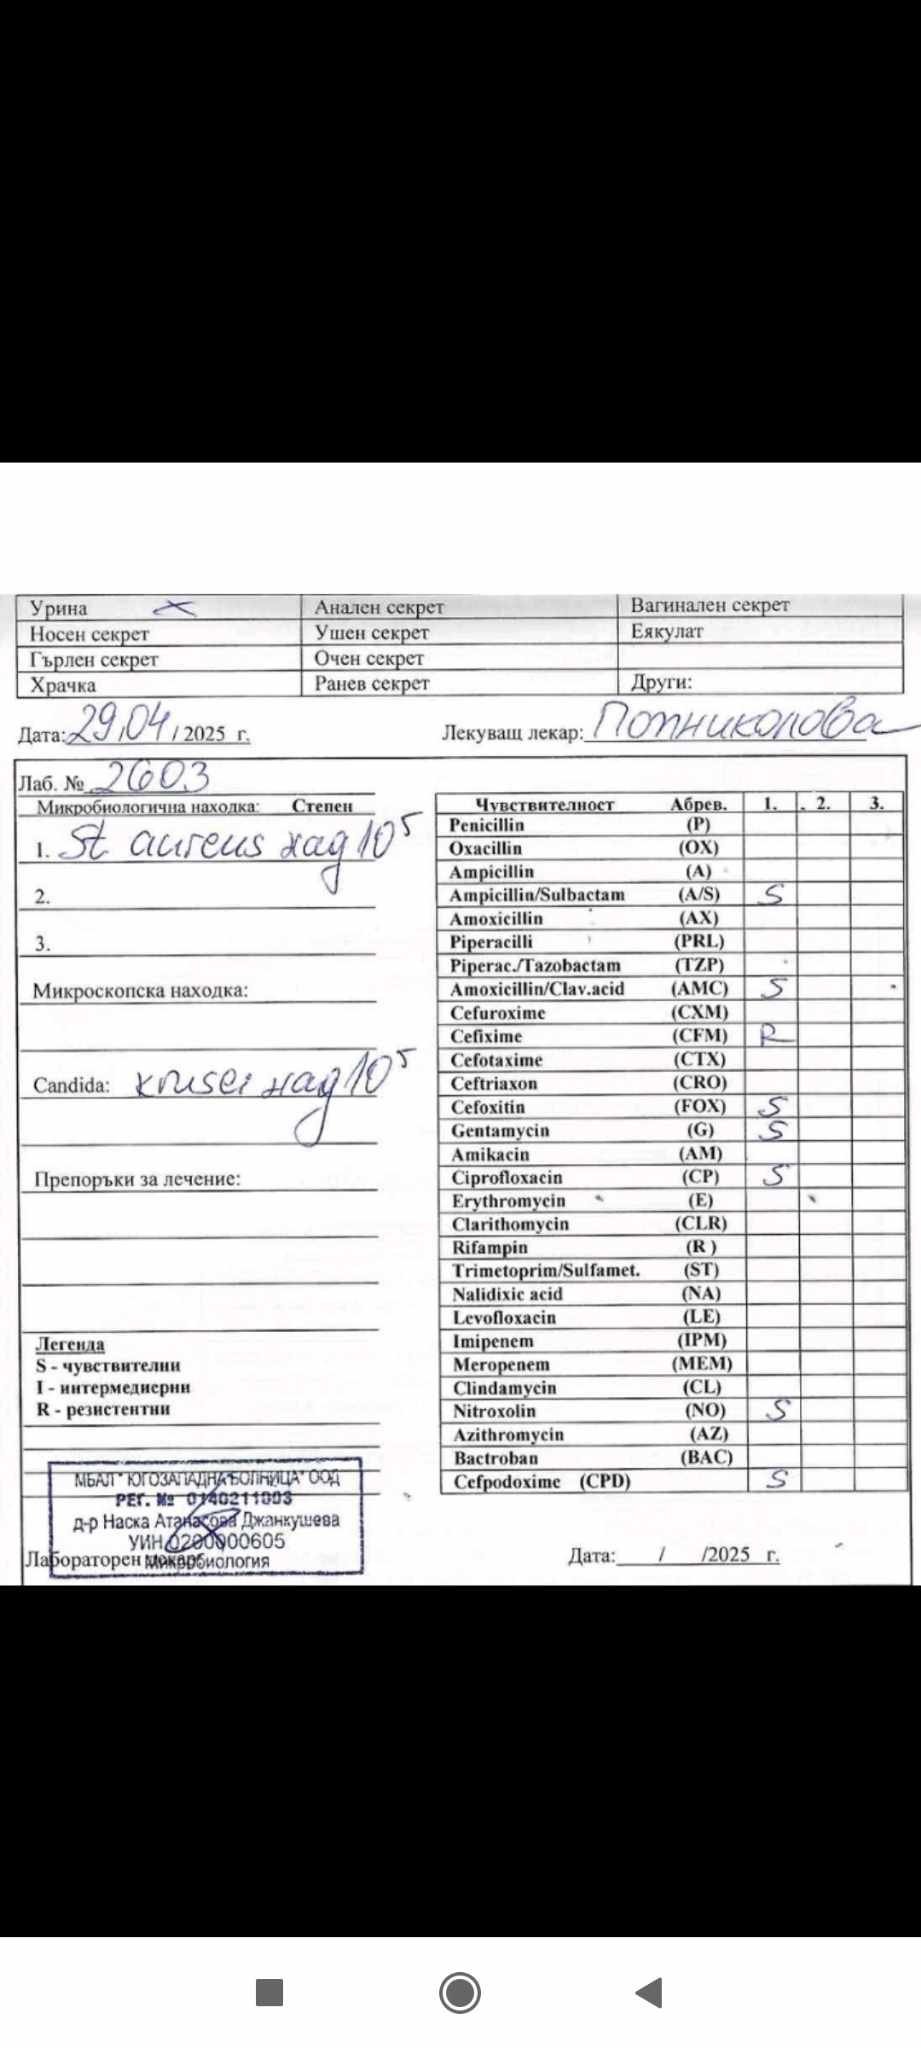 Урина х Анален секрет Вагинален секрет
Носен секрет Ушен секрет Еякулат
Гърлен секрет Очен секрет
Храчка Ранев секрет Други:
Дата: 29,04 / 2025 г. Лекуващ лекар:
Лаб. № 2603
Микробиологична находка: Степен
1. St aureus над 10⁵
2.
3.
Микроскопска находка:
Candida: krusei над 10⁵
Препоръки за лечение:
Легенда
S - чувствителни
I - интермедиерни
R - резистентни
МБАЛ "ЮГОЗАПАДНА БОЛНИЦА" ООД
РЕГ. № 0140211003
д-р Наска Атанасова Джанкушева
УИН 0200000605
Микробиология
Лабораторен лекар:
Чувствителност Абрев. 1. . 2. 3.
Penicillin (P)
Oxacillin (OX)
Ampicillin (A)
Ampicillin/Sulbactam (A/S) S
Amoxicillin (AX)
Piperacilli (PRL)
Piperac./Tazobactam (TZP)
Amoxicillin/Clav.acid (AMC) S
Cefuroxime (CXM)
Cefixime (CFM) R
Cefotaxime (CTX)
Ceftriaxon (CRO)
Cefoxitin (FOX) S
Gentamycin (G) S
Amikacin (AM)
Ciprofloxacin (CP) S
Erythromycin (E)
Clarithomycin (CLR)
Rifampin (R )
Trimetoprim/Sulfamet. (ST)
Nalidixic acid (NA)
Levofloxacin (LE)
Imipenem (IPM)
Meropenem (MEM)
Clindamycin (CL)
Nitroxolin (NO) S
Azithromycin (AZ)
Bactroban (BAC)
Cefpodoxime (CPD) S
Дата: / /2025 г.